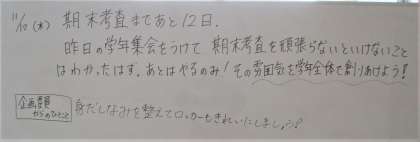 11/12(水) 期末考査まであと12日.
昨日の学年集会をうけて 期末考査を頑張らないといけないこと
はわかったはず。あとはやるのみ!その雰囲気を学年全体で創りあげよう!
企画委員
からのひとこと
身だしなみを整えてロッカーもきれいにしましょう!